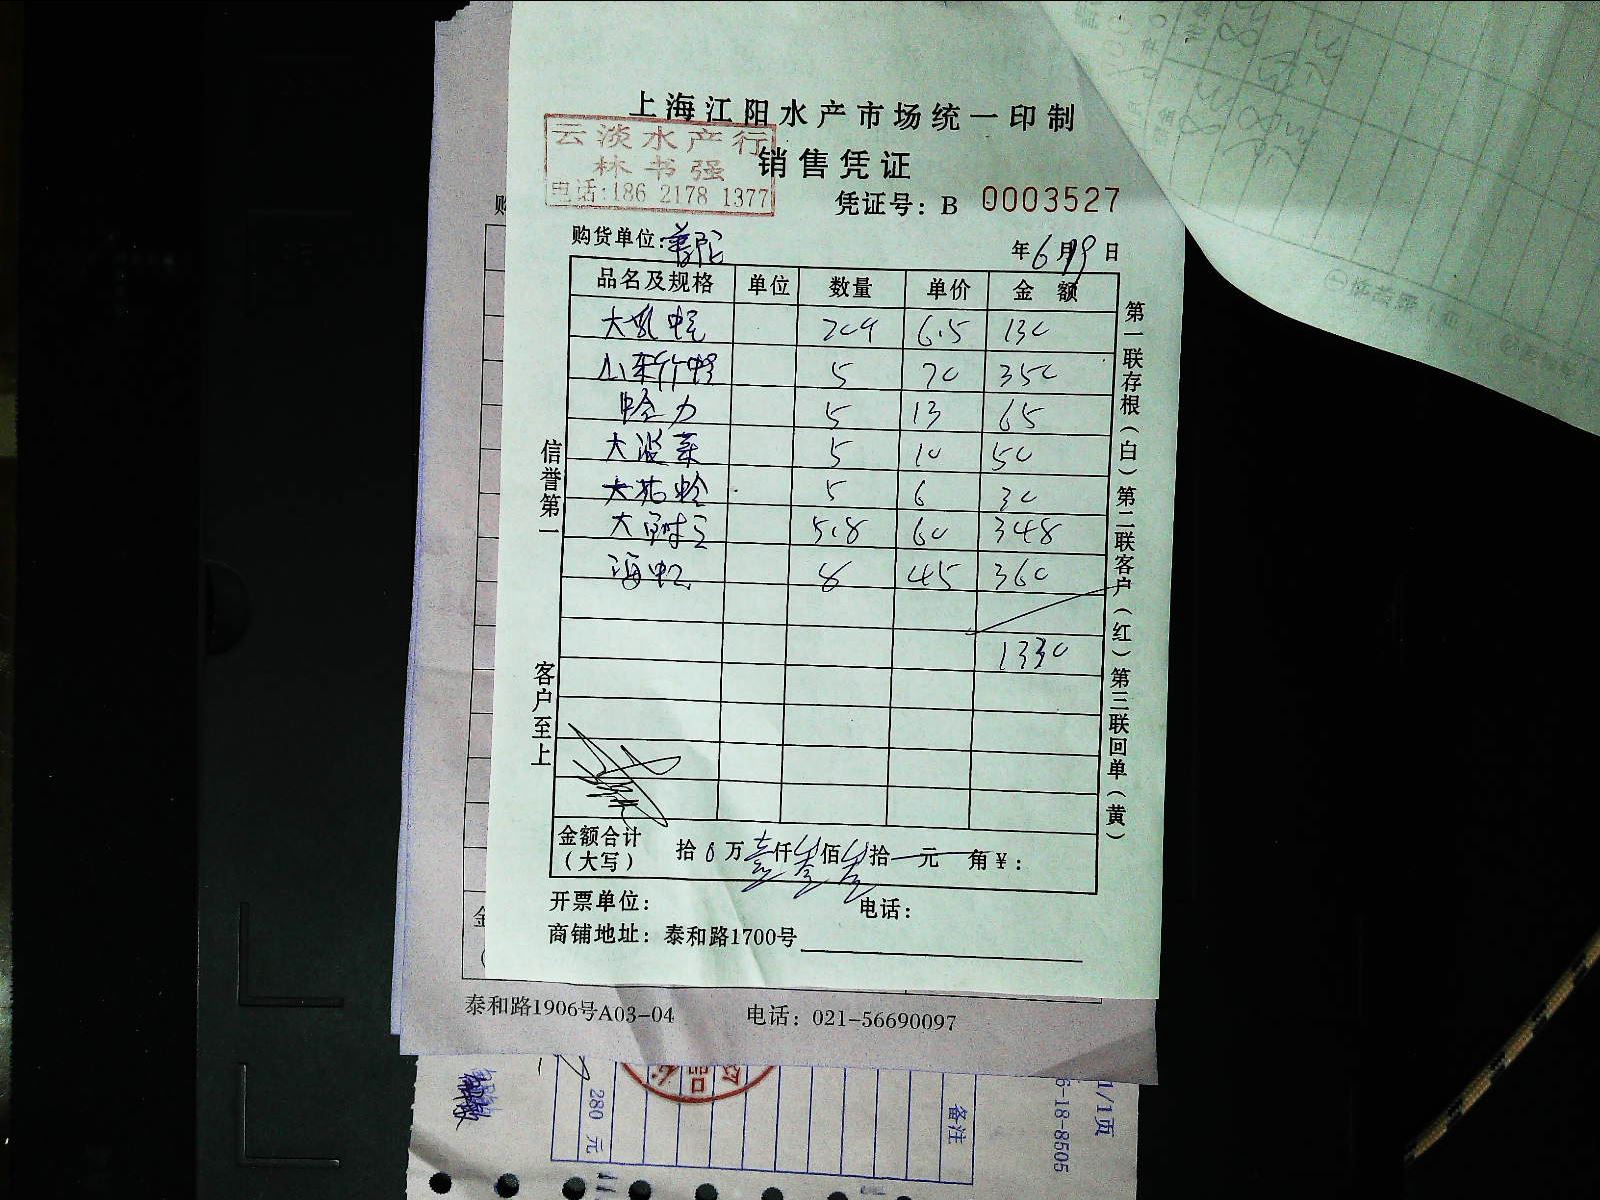 上海江阳水产市场统一印制
云淡水产行
林书强
电话:186 2178 1377
销售凭证
凭证号: B 0003527
购货单位:普陀
年6月19日
品名及规格 单位 数量 单价 金额
大 6.5 130
山东竹蛏 5 70 350
蛤力 5 13 65
大菠菜 5 10 50
大花蛤 5 6 30
大 5.8 60 348
海虹 8 45 360
1330
金额合计
(大写)
拾0万壹仟叁佰叁拾 元 角¥:
开票单位:
电话:
商铺地址: 泰和路1700号
信誉第一 客户至上
第一联存根(白)第二联客户(红)第三联回单(黄)
泰和路1906号A03-04 电话: 021-56690097
280 元
备注
6-18-8505
1/1页